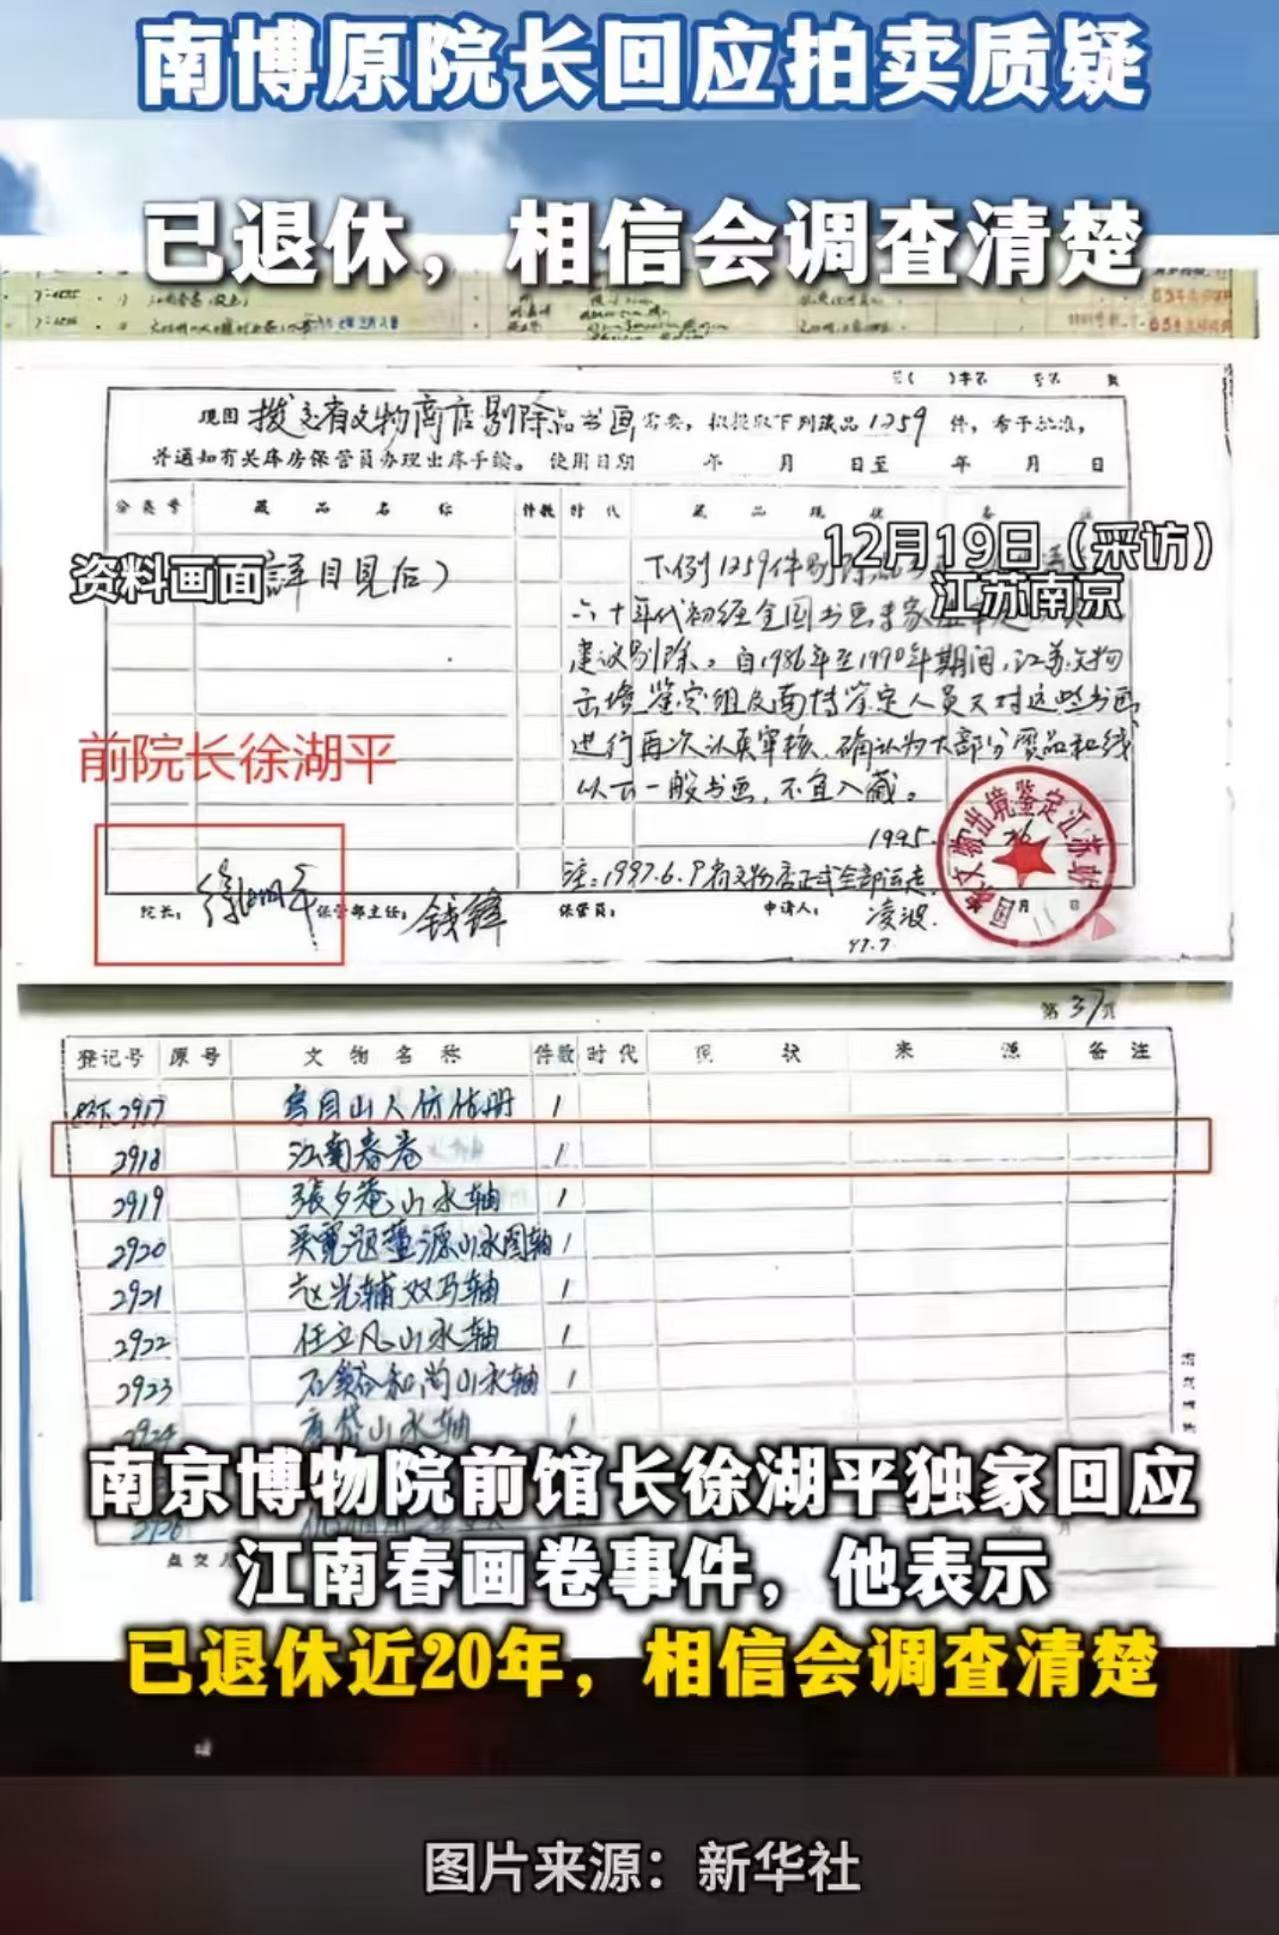 南博原院长回应拍卖质疑
已退休，相信会调查清楚
现因 拨交省文物商店剔除品书画 需要，拟提取下列藏品 1259 件，希予批准，
并通知有关库房保管员办理出库手续。 使用日期 年 月 日至 年 月 日
分类号 藏品名称 件数 时代 藏品现状 备
12月19日（采访）
江苏南京
资料画面
詳目見后）
下例1259件剔除
六十年代初经全国书画专家
建议剔除。自1986年至1990年期间，江苏文物
出境鉴定组及南博鉴定人员又对这些书画
进行再次认真审核，确认为大部分赝品和线
以下一般书画，不宜入藏。
前院长徐湖平
1995.
注：1997.6.9省文物店正式全部运走.
院长： 徐湖平 保管部主任： 钱锋 保管员： 申请人： 凌波.
97.7
文物出境鉴定江苏站
第 37 页
登记号 原号 文物名称 件数 时代 现状 来源 备注
2917 山人仿 册 1
2918 江南春卷 1
2919 張夕菴山水轴 1
2920 吴寬题董源山水图轴 1
2921 赵光辅双马轴 1
2922 任立凡山水轴 1
2923 石谿和尚山水轴 1
2924 山水轴
南京博物院前馆长徐湖平独家回应
江南春画卷事件，他表示
已退休近20年，相信会调查清楚
图片来源：新华社